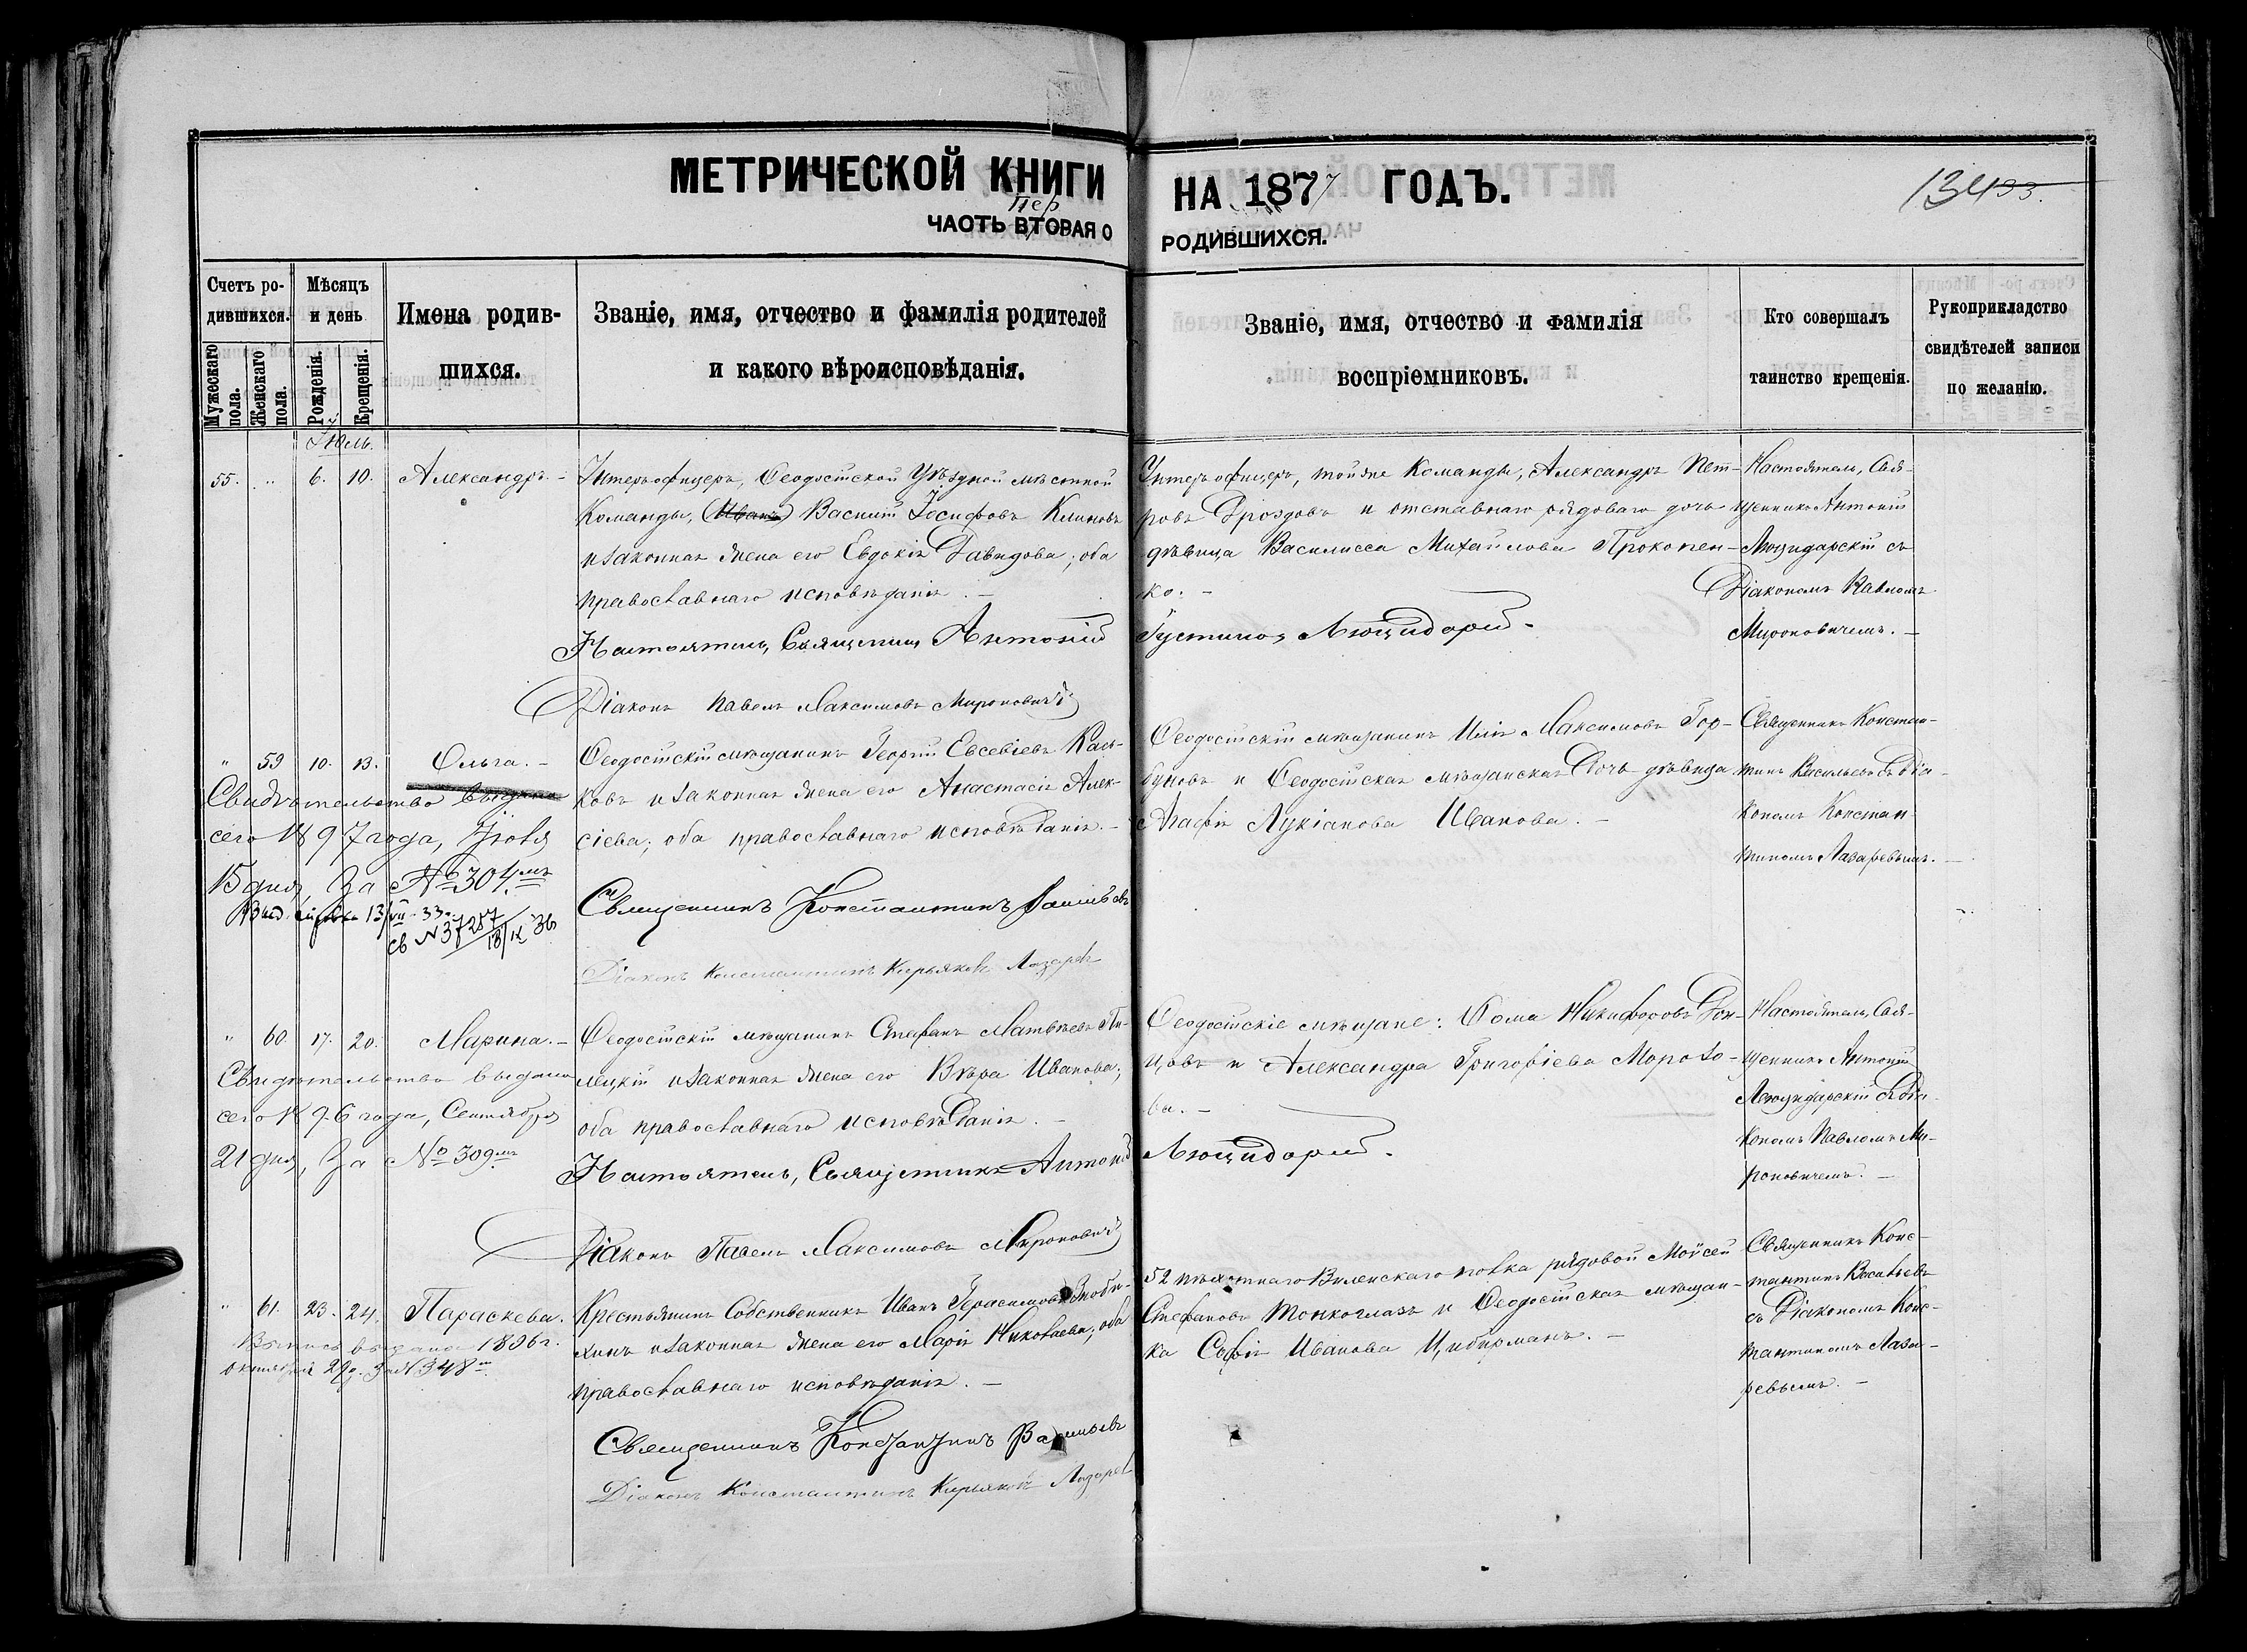 МЕТРИЧЕСКОЙ КНИГИ НА 1877 ГОДЪ.
134
Пер
ЧАСТЬ ВТОРАЯ О РОДИВШИХСЯ.
Счетъ родившихся.
Мужескаго пола.
Женскаго пола.
Мѣсяцъ и день
Рожденія.
Крещенія.
Имена родившихся.
Званіе, имя, отчество и фамилія родителей
и какого вѣроисповѣданія.
Званіе, имя, отчество и фамилія
воспріемниковъ.
Кто совершалъ
таинство крещенія.
Рукоприкладство
свидѣтелей записи
по желанію.
Іюль.
55. " 6. 10. Александръ. -
Унтеръ-офицеръ, Ѳеодосійской Уѣздной мѣстной
Команды, (Иванъ) Василій Іосифовъ Климовъ
и законная жена его Евдокія Давидова; оба
православнаго исповѣданія. -
Настоятель, Священникъ Антоній
Діаконъ Павелъ Максимовъ Мироновичъ
Унтеръ офицеръ, тойже Команды, Александръ Пет-
ровъ Дроздовъ и отставнаго рядоваго дочь
дѣвица Василисса Михайлова Прокопен-
ко. -
Густиновъ Люцидарій.
Настоятель, Свя-
щенникъ Антоній
Люцидарскій съ
Діакономъ Павломъ
Мироновичемъ. -
" 59 10. 13. Ольга. -
Свидѣтельство выдано
сего 1897 года, Іюля
15 дня, За №304мъ
Выд. справка 13/VII-33
св N37257 18/IX 36
Ѳеодосійскій мѣщанинъ Георгій Евсевіевъ Кась-
ковъ и законная жена его Анастасія Алек-
сіева; оба православнаго исповѣданія. -
Священникъ Константинъ Васильевъ
Діаконъ Константинъ Кирьяковъ Лазаревъ
Ѳеодосійскій мѣщанинъ Илія Максимовъ Гор-
буновъ и Ѳеодосійская мѣщанская дочь дѣвица
Агафія Лукіанова Иванова. -
Священникъ Констан-
тинъ Васильевъ съ Діа-
кономъ Констан-
тиномъ Лазаревымъ. -
" 60. 17. 20. Марина. -
Свидѣтельство выдано
сего 1896 года, Сентября
21 дня, За №309мъ
Ѳеодосійскій мѣщанинъ Стефанъ Матвѣевъ Пи-
лецкій и законная жена его Вѣра Иванова;
оба православнаго исповѣданія. -
Настоятель, Священникъ Антоній
Діаконъ Павелъ Максимовъ Мироновичъ
Ѳеодосійскіе мѣщане: Ѳома Никифоровъ Дон-
цовъ и Александра Григоріева Морозо-
ва. -
Люцидарій.
Настоятель, Свя-
щенникъ Антоній
Люцидарскій съ Діа-
кономъ Павломъ Ми-
роновичемъ. -
" 61. 23. 24. Параскева.
Выпись выдана 1896 г.
Октября 29 д. за №348мъ
Крестьянинъ Собственникъ Иванъ Герасимовъ Зноби-
хинъ и законная жена его Марія Николаева; оба
православнаго исповѣданія. -
Священникъ Константинъ Васильевъ
Діаконъ Константинъ Кирьяковъ Лазаревъ
52 пѣхотнаго Виленскаго полка рядовой Моѵсей
Стефановъ Тонкоглазъ и Ѳеодосійская мѣщан-
ка Софія Иванова Цибирманъ. -
Священникъ Конс-
тантинъ Васильевъ
съ Діакономъ Конс-
тантиномъ Лаза-
ревымъ. -